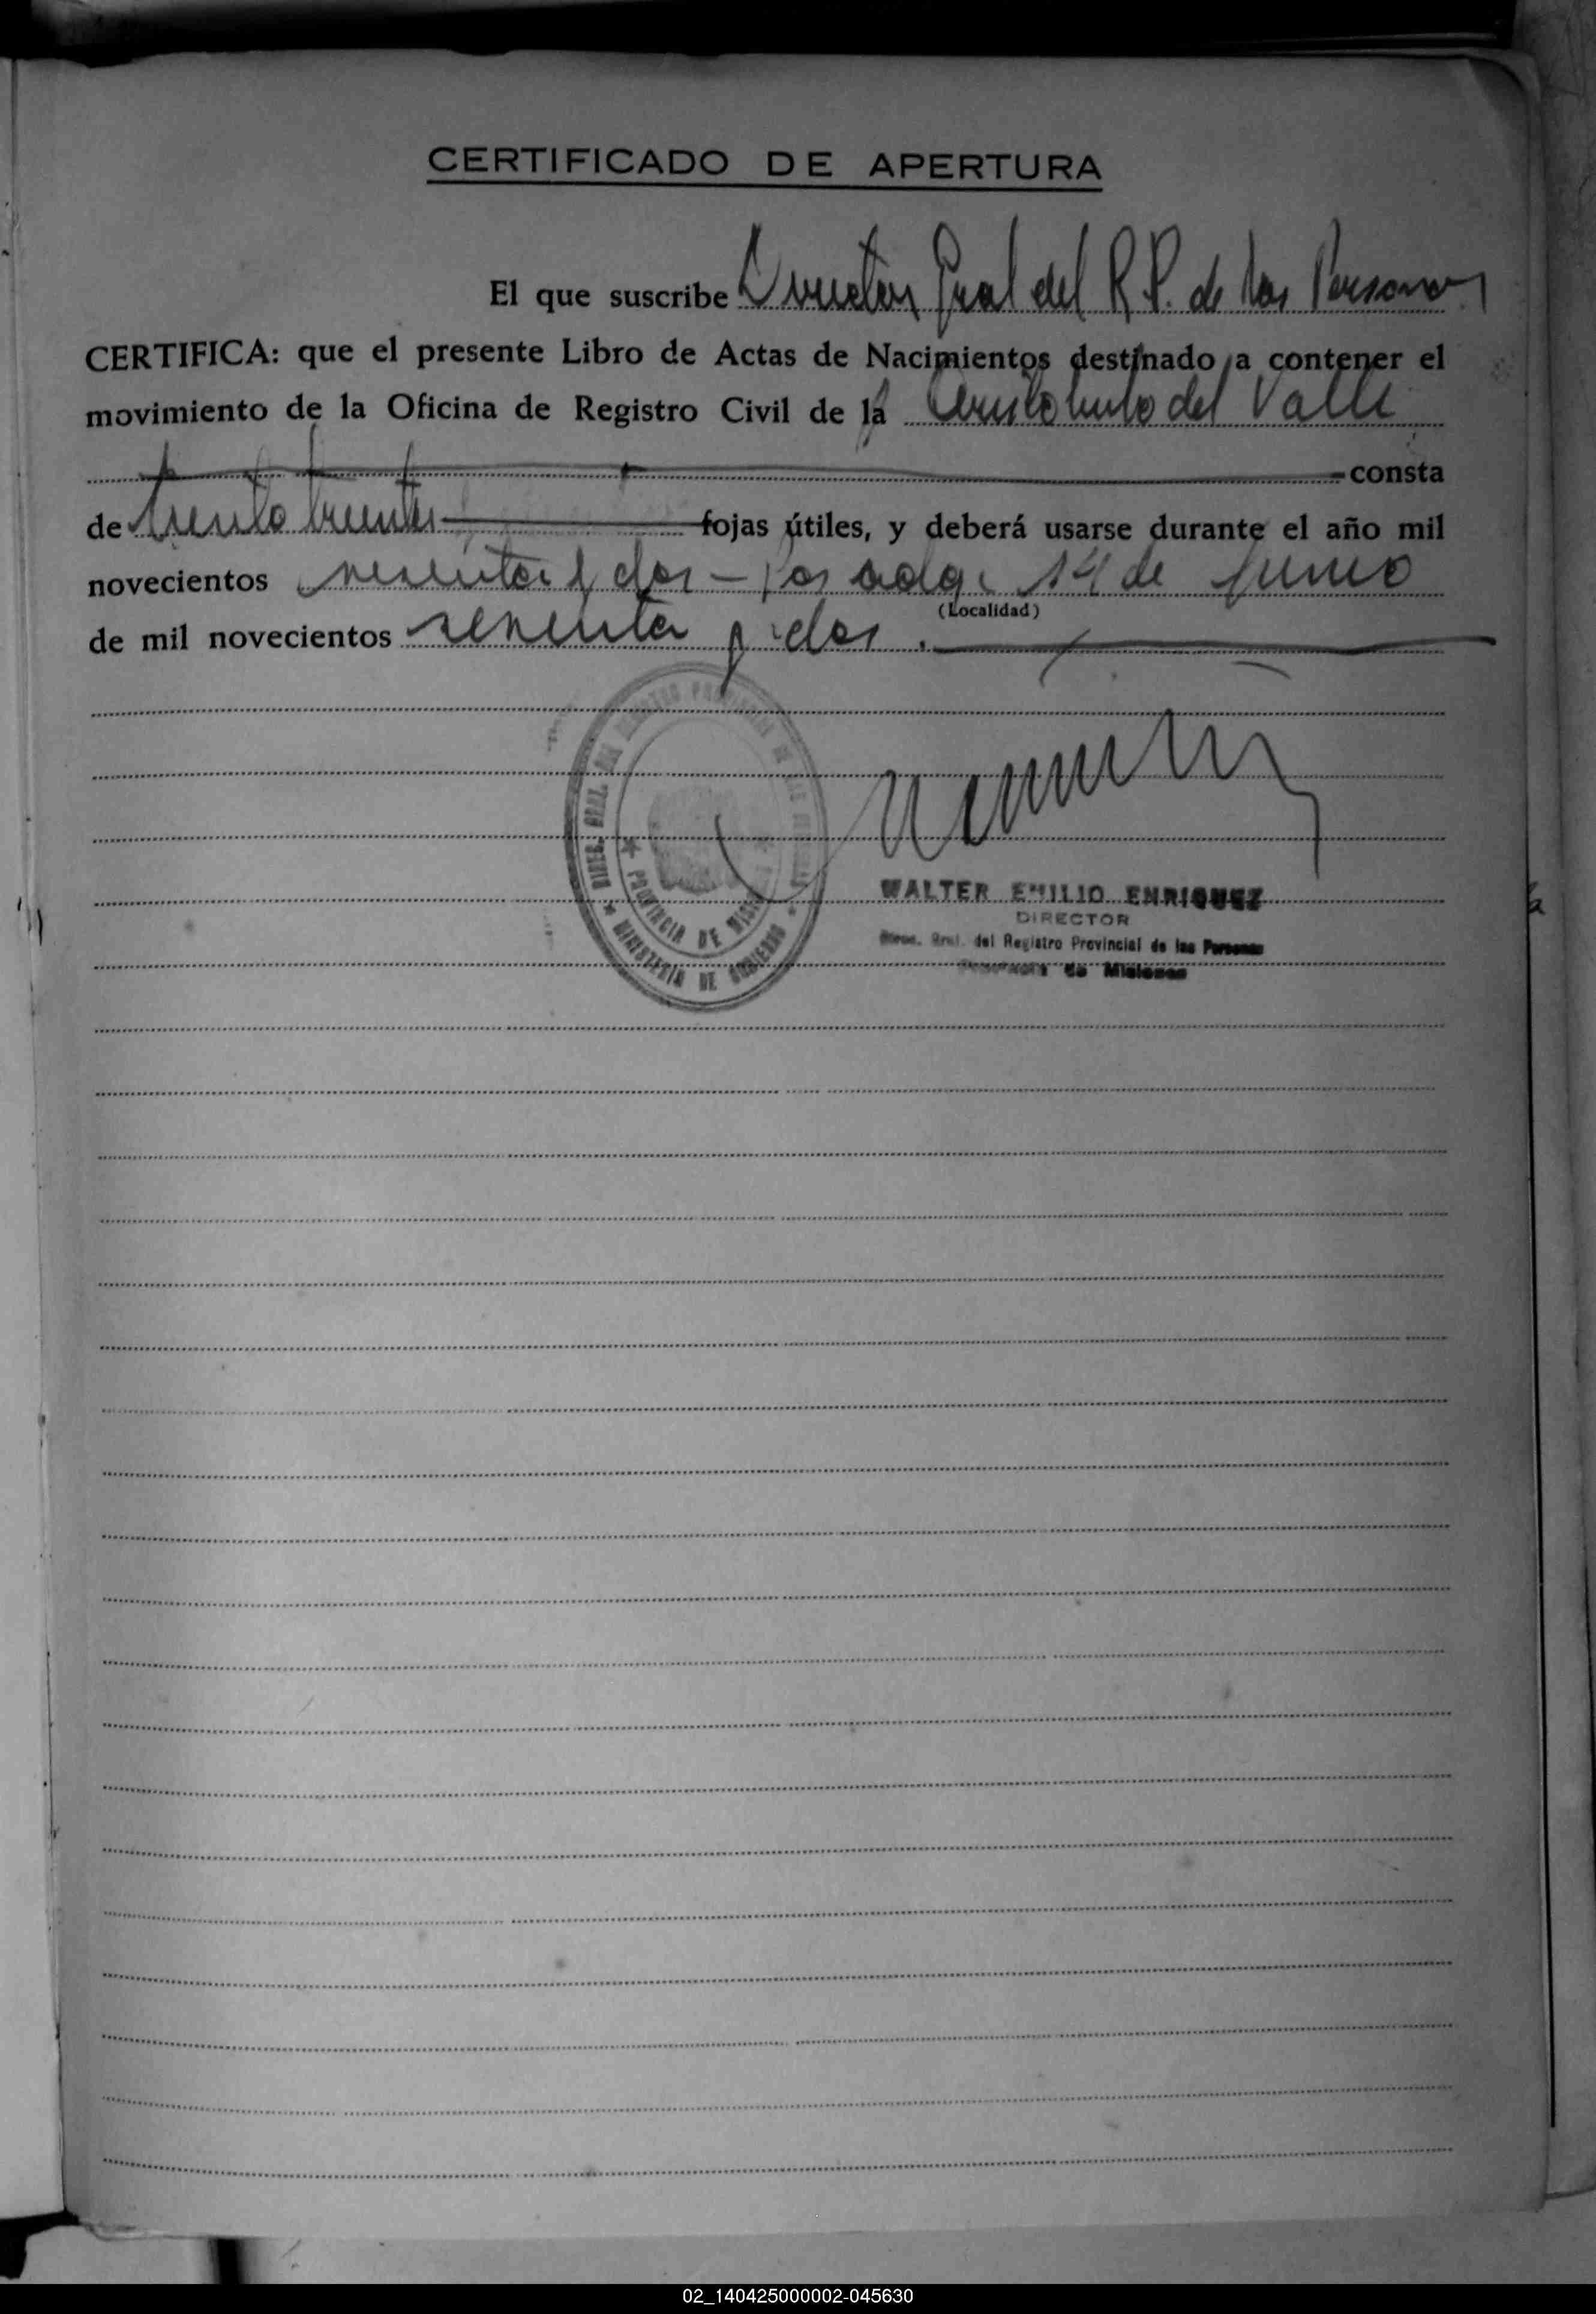 CERTIFICADO DE APERTURA
El que suscribe Director Gral del R.P. de las Personas
CERTIFICA: que el presente Libro de Actas de Nacimientos destinado a contener el
movimiento de la Oficina de Registro Civil de la del Valle
consta
de ciento treinta fojas útiles, y deberá usarse durante el año mil
novecientos sesenta y dos - Posadas 14 de Junio
(Localidad)
de mil novecientos sesenta y dos.
PROVINCIA DE
MINISTERIO DE GOBIERNO
WALTER EMILIO ENRIQUEZ
DIRECTOR
Direc. Gral. del Registro Provincial de las Personas
Provincia de Misiones
02_140425000002-045630